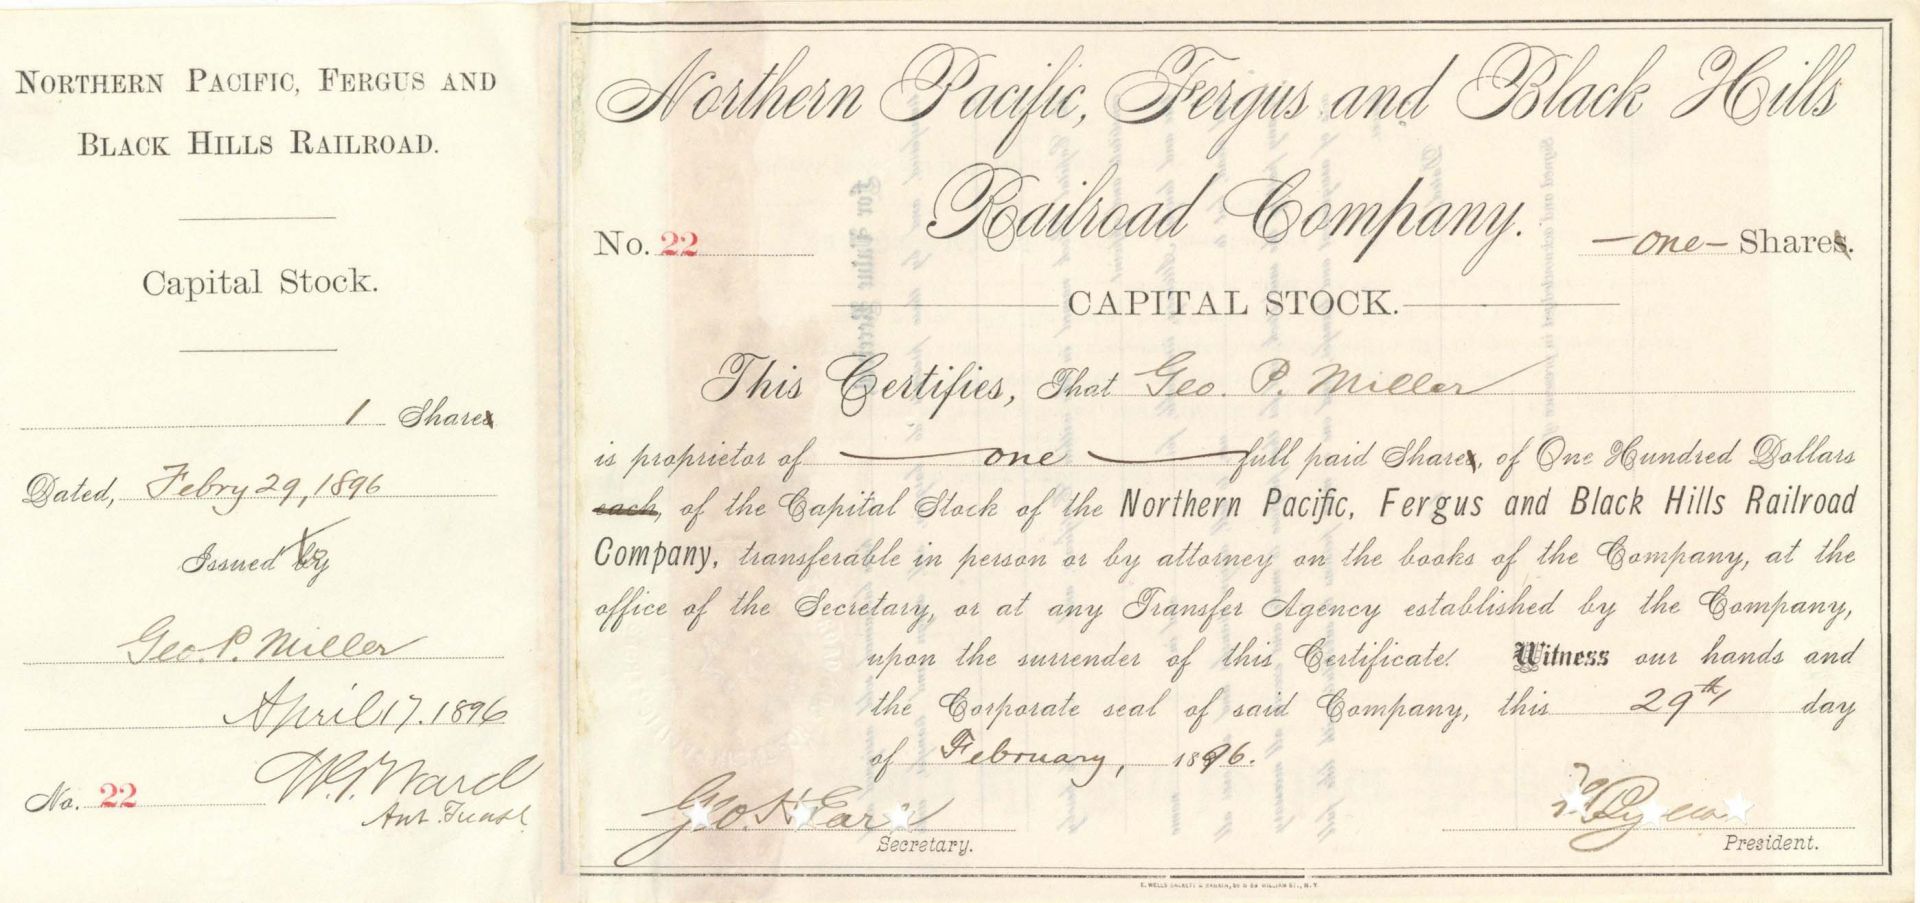 NORTHERN PACIFIC, FERGUS AND
BLACK HILLS RAILROAD.
Capital Stock.
1 Shares
Dated, Febry 29, 1896
Issued by
Geo. P. Miller
April 17. 1896
No. 22
Ward
Northern Pacific, Fergus and Black Hills
Railroad Company.
No. 22
—one— Shares.
CAPITAL STOCK.
This Certifies, That Geo. P. Miller
is proprietor of — one — full paid Shares, of One Hundred Dollars
each, of the Capital Stock of the Northern Pacific, Fergus and Black Hills Railroad
Company, transferable in person or by attorney on the books of the Company, at the
office of the Secretary, or at any Transfer Agency established by the Company,
upon the surrender of this Certificate. Witness our hands and
the Corporate seal of said Company, this 29th day
of February, 1896.
Geo. H. Earl
Secretary.
President.